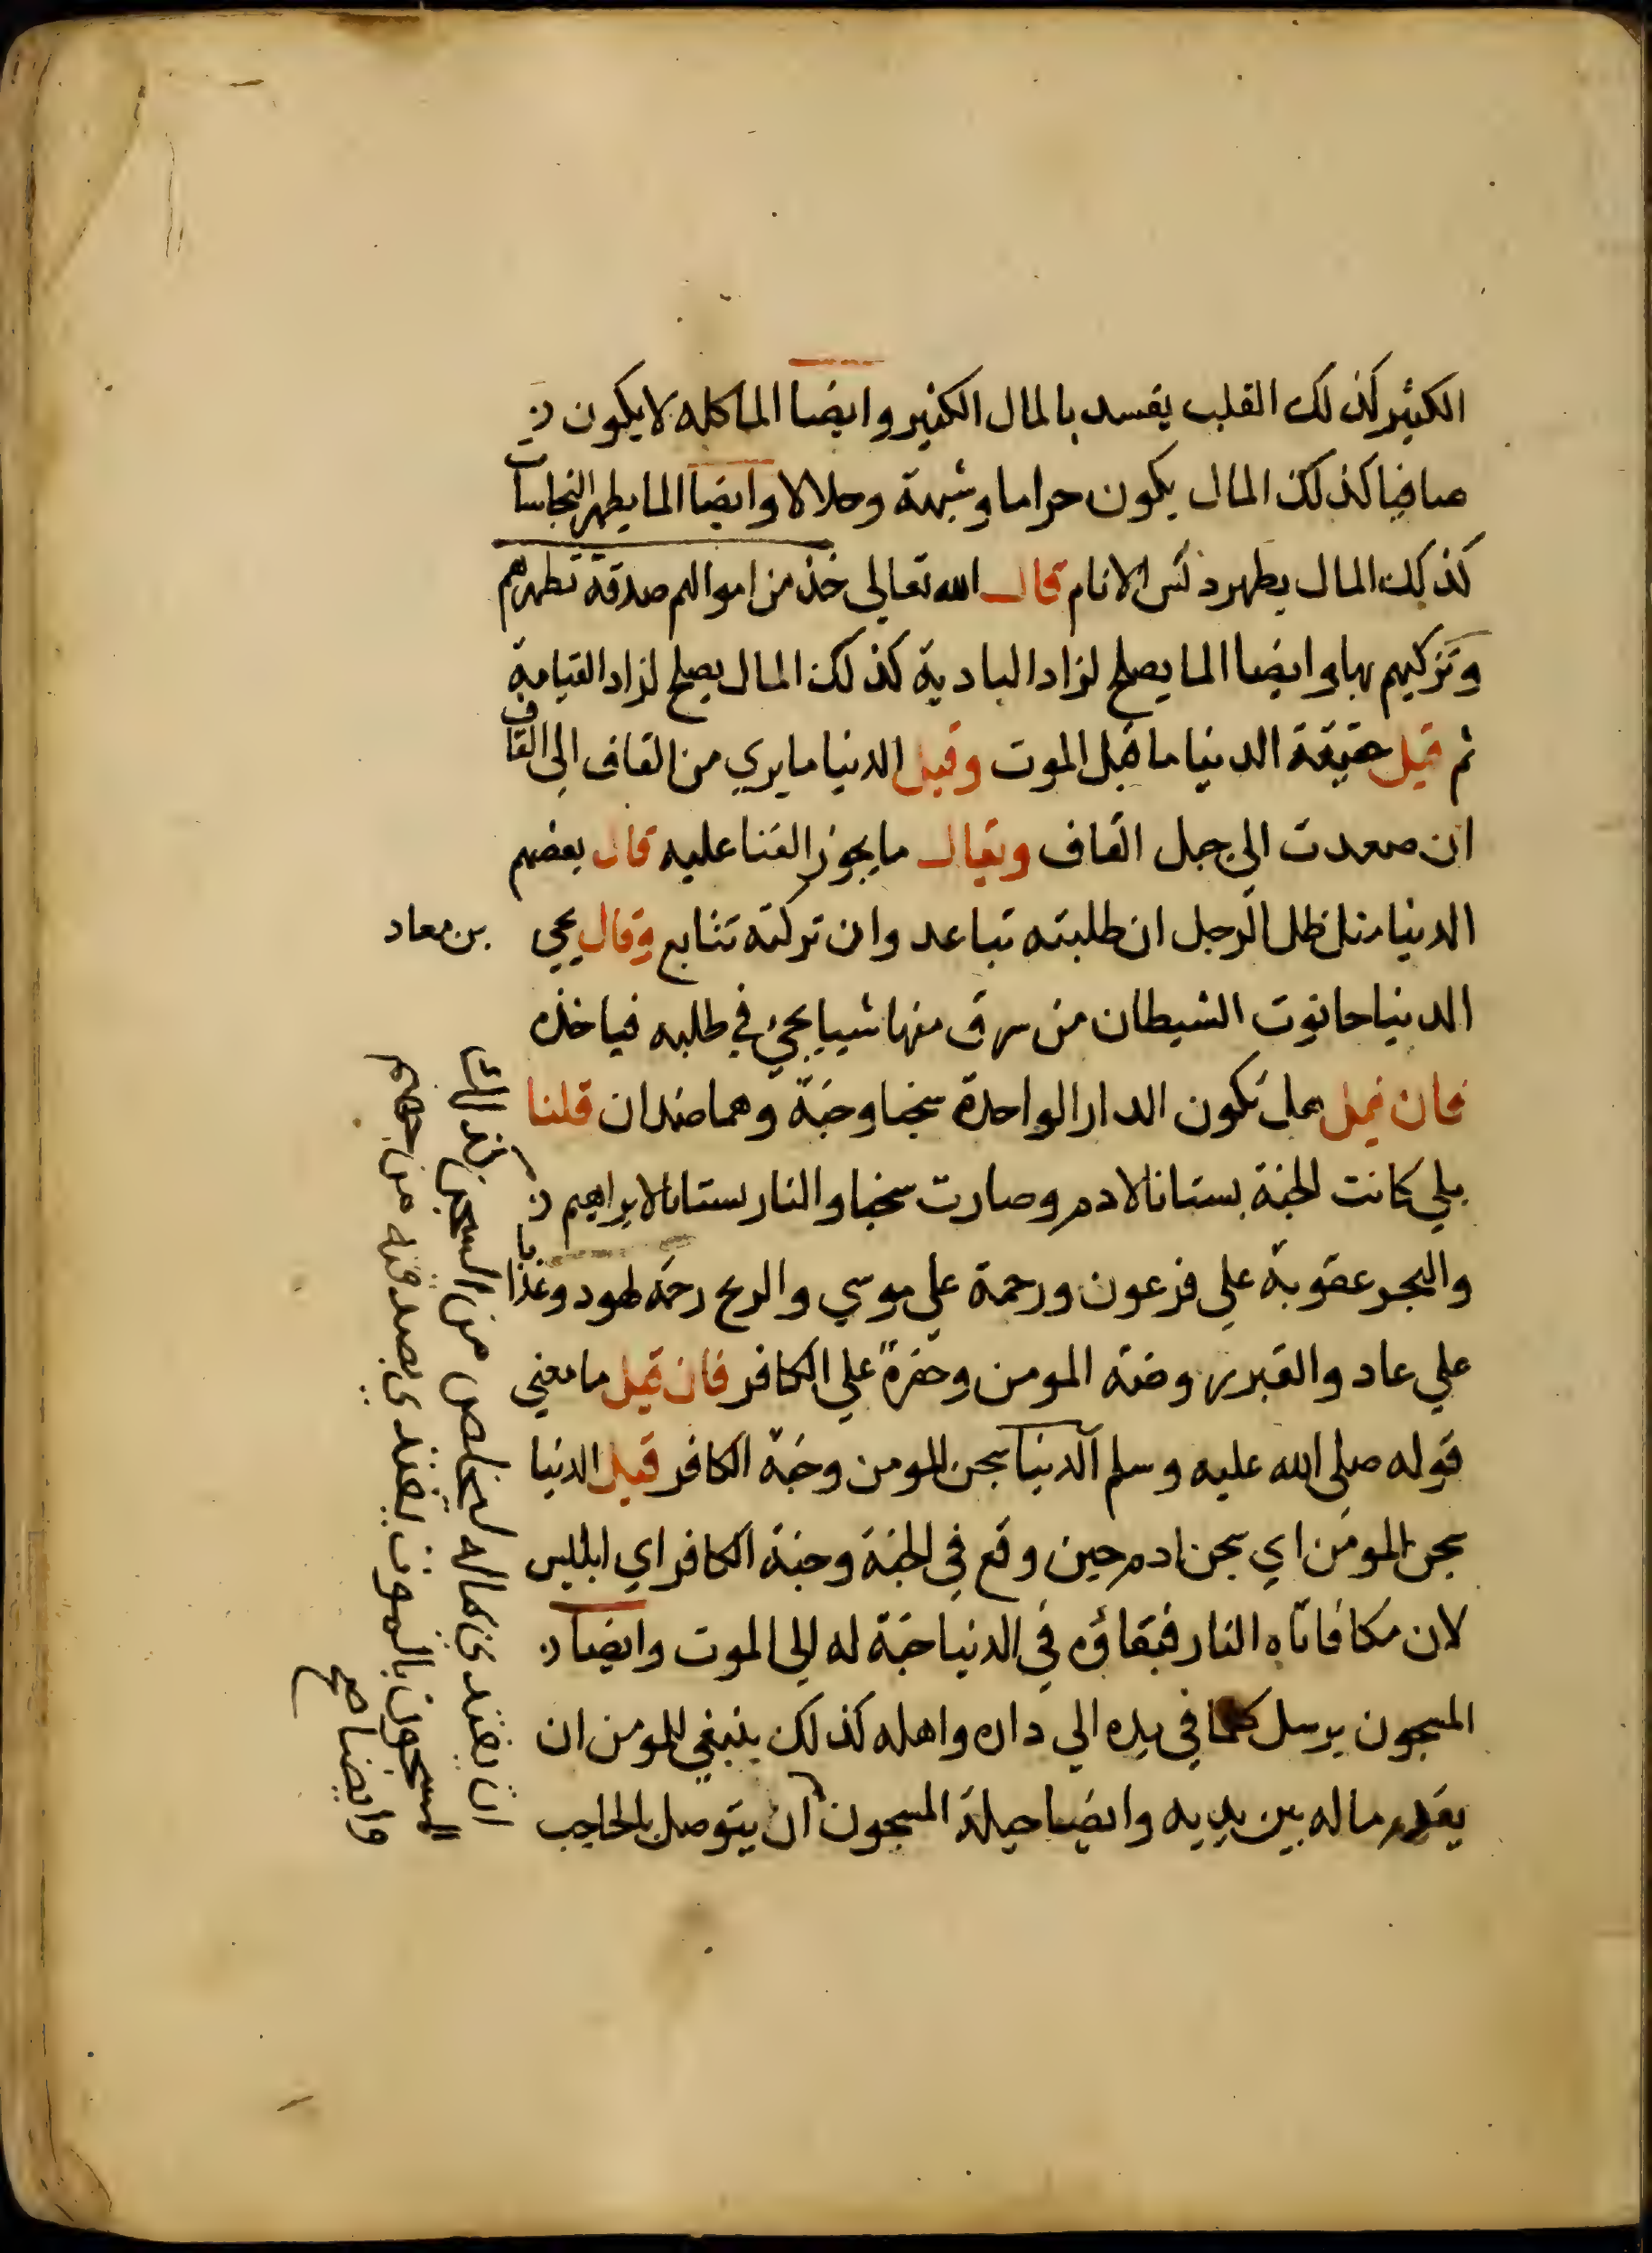 الكثير كذلك القلب يفسد بالمال الكثير وايضا الما كله لا يكون
صافيا كذلك المال يكون حراما وشبهة وحلالا وايضا الما يطهر النجاسات
كذلك المال يطهر دنس الاثام قال الله تعالي خذ من اموالهم صدقة تطهرهم
وتزكيهم بها وايضا الما يصلح لزاد البادية كذلك المال يصلح لزاد القيامة
ثم قيل حقيقة الدنيا ما قبل الموت وقيل الدنيا ما يري من القاف الي القاف
ان صعدت الي جبل القاف ويقال ما يجوز الفنا عليه قال بعضهم
الدنيا مثل ظل الرجل ان طلبته تباعد وان تركته تتابع وقال يحيي بن معاد
الدنيا حانوت الشيطان من سرق منها شييا يجيء في طلبه فياخذه
فان قيل هل تكون الدار الواحدة سجنا وجنة وهما ضدان قلنا
بلي كانت الجنة بستانا لادم وصارت سجنا والنار بستانا لابراهيم
والبحر عقوبة علي فرعون ورحمة علي موسي والريح رحمة لهود وعذابا
علي عاد والقبر روضة المومن وحفرة علي الكافر فان قيل ما معني
قوله صلي الله عليه وسلم الدنيا سجن المومن وجنة الكافر قيل الدنيا
سجن المومن اي سجن ادم حين وقع في الجنة وجنة الكافر اي ابليس
لان مكافاتاه النار فبقاؤه في الدنيا جنة له الي الموت وايضا
المسجون يرسل كلما في يده الي داره واهله كذلك ينبغي للمومن ان
يقدم ماله بين يديه وايضا حيلة المسجون ان يتوصل بالحاجب
ان يفتدي بماله ليتخلص من السجن كذلك
المسجون بالموت يفتدي بصدقته من جهنم
وايضا صح